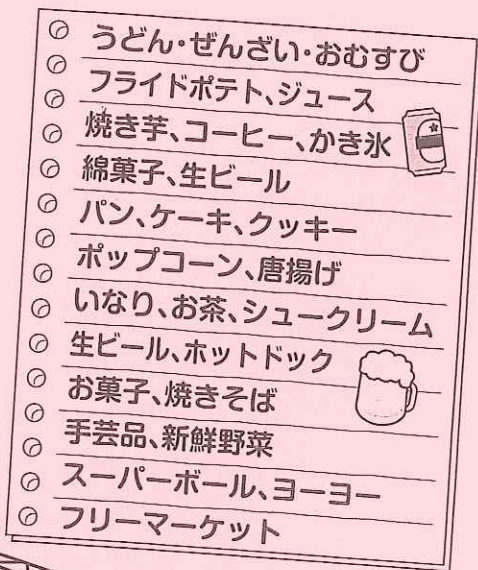 うどん・ぜんざい・おむすび
フライドポテト、ジュース
焼き芋、コーヒー、かき氷
綿菓子、生ビール
パン、ケーキ、クッキー
ポップコーン、唐揚げ
いなり、お茶、シュークリーム
生ビール、ホットドック
お菓子、焼きそば
手芸品、新鮮野菜
スーパーボール、ヨーヨー
フリーマーケット